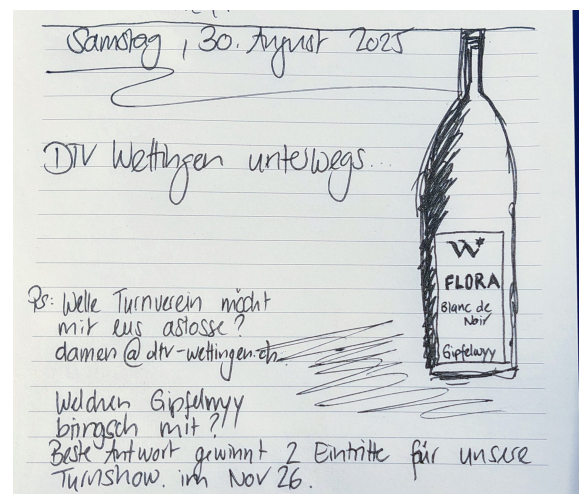 Samstag, 30. August 2025
DTV Wettingen unterwegs...
W*
FLORA
Blanc de
Noir
Gipfelwyy
Ps: Welle Turnverein möcht
mit eus astosse?
damen@dtv-wettingen.ch
Welchen Gipfelwyy
bringsch mit?!
Beste Antwort gewinnt 2 Eintritte für unsere
Turnshow im Nov 26.